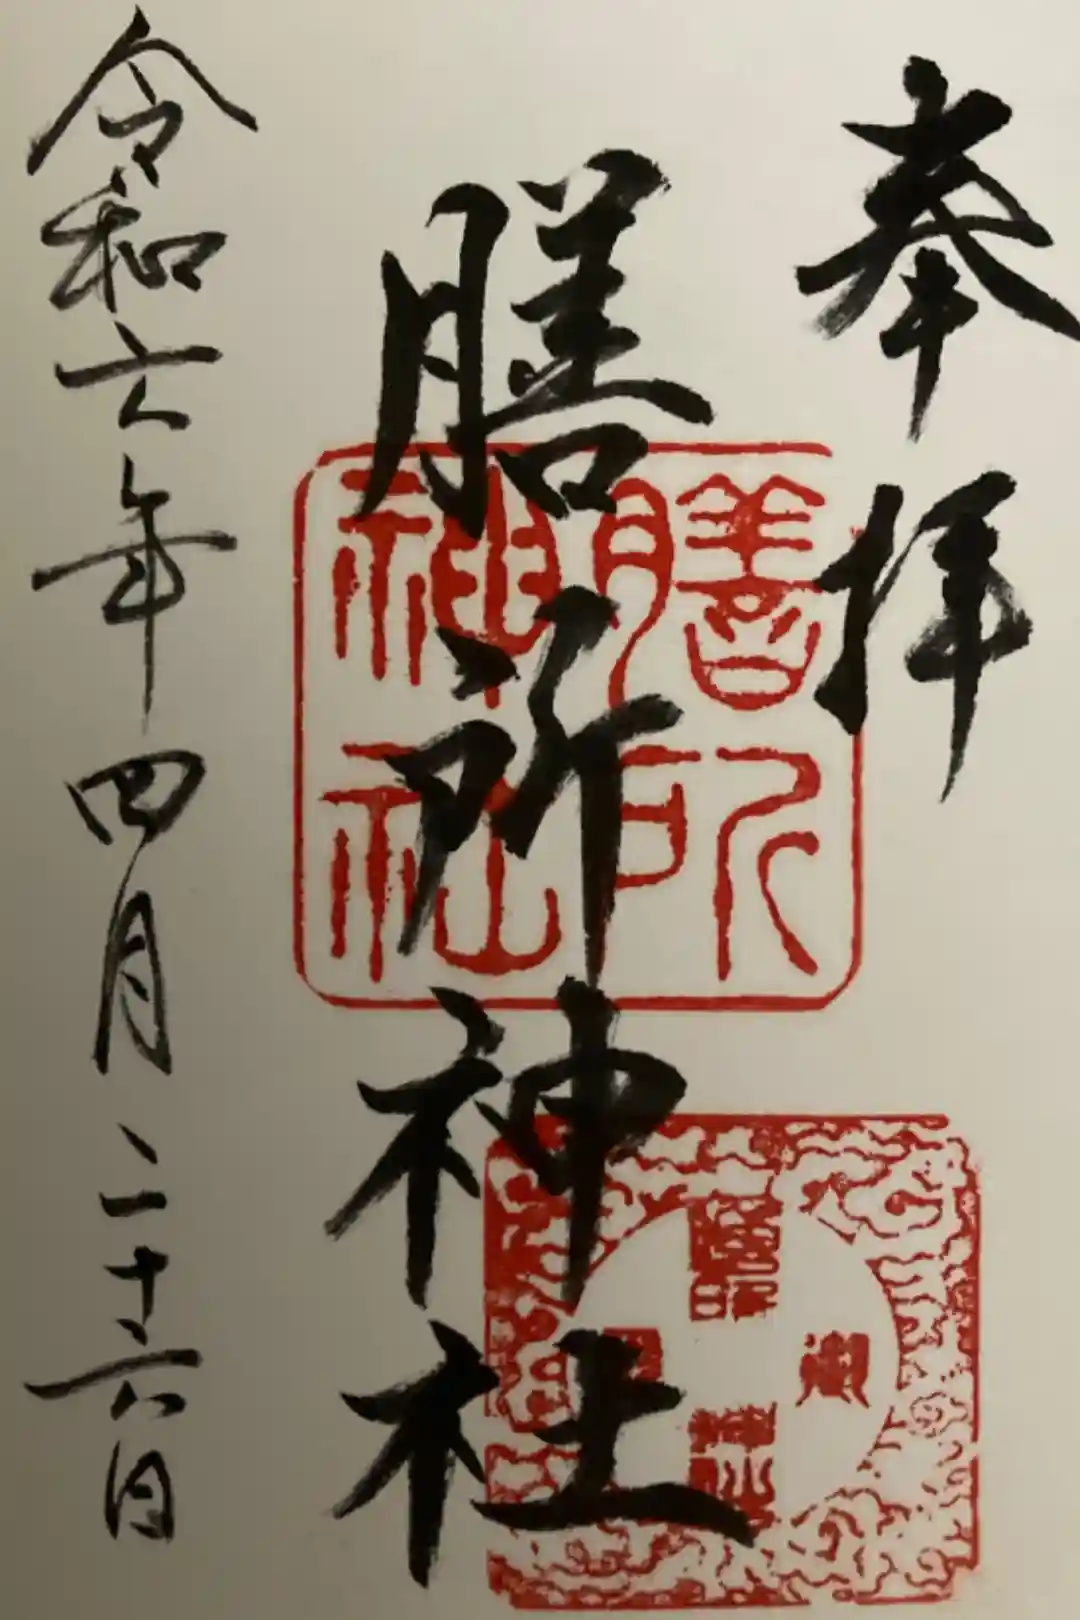 奉拝
膳所神社
令和六年四月二十六日
膳所
神社